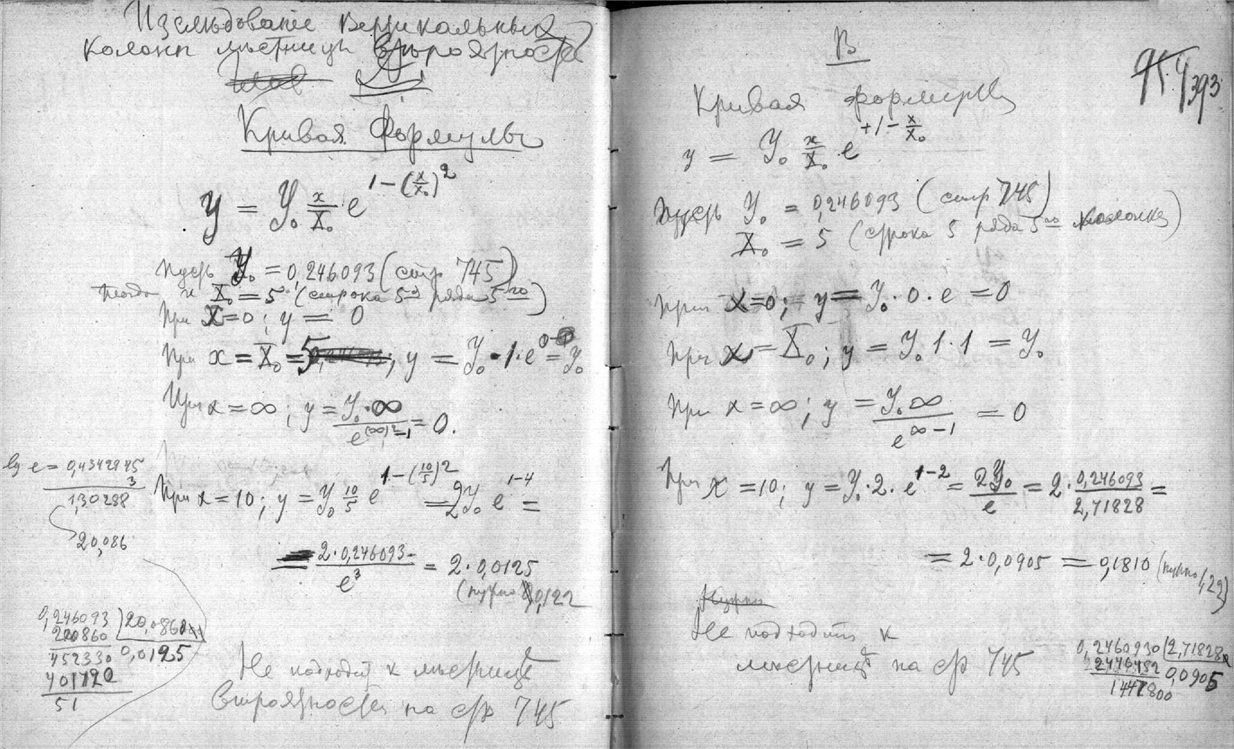 Изслѣдованіе Вертикальныхъ
колонн лѣстницы вѣроятности
Кривая Формулы
y = Y₀ x/X₀ e^(1-(x/X₀)²)
пусть Y₀ = 0,246093 (стр 745)
тогда и X₀ = 5 (строка 5-й ряда 5го)
При X=0; y = 0
При x = X₀ = 5; y = Y₀·1·e⁰ = Y₀
При x = ∞; y = Y₀·∞/e^((∞)²-1) = 0.
lg e = 0,4342945
3
1,30288
20,086
При x = 10; y = Y₀ 10/5 e^(1-(10/5)²) = 2Y₀ e^(1-4) =
= 2·0,246093/e³ = 2·0,0125
(нужно 0,122
0,246093 | 20,0860
200860 0,0125
452330
401720
51
Не подходит к лѣстницѣ
вѣроятности на стр 745
B
95.4/393
Кривая формулы
y = Y₀ x/X₀ e^(+1-x/X₀)
Пусть Y₀ = 0,246093 (стр 745)
X₀ = 5 (строка 5 ряда 5го колонны)
при X=0; y = Y₀·0·e = 0
При x = X₀; y = Y₀ 1·1 = Y₀
При x = ∞; y = Y₀ ∞/e^(∞-1) = 0
При X = 10; y = Y₀·2·e^(1-2) = 2Y₀/e = 2·0,246093/2,71828 =
= 2·0,0905 = 0,1810 (нужно 1,22)
Не подходит к
лѣстницѣ на стр 745
0,2460930 | 2,71828
2446452 0,0905
1447800